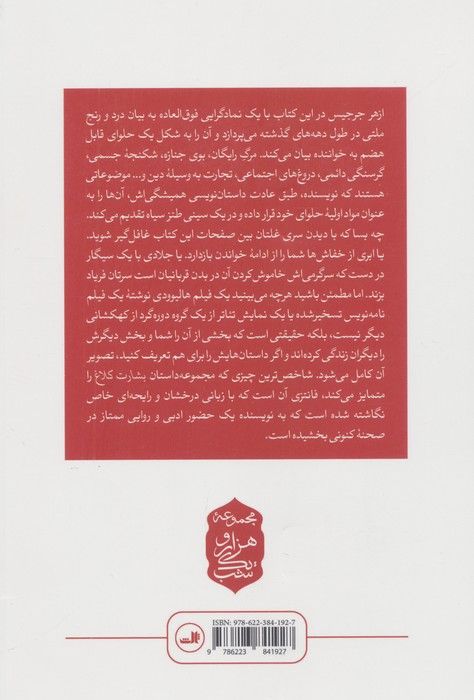 ازهر جرجیس در این کتاب با یک نمادگرایی فوق‌العاده به بیان درد و رنج
ملتی در طول دهه‌های گذشته می‌پردازد و آن را به شکل یک حلوای قابل
هضم به خواننده بیان می‌کند. مرگِ رایگان، بوی جنازه، شکنجهٔ جسمی،
گرسنگی دائمی، دروغ‌های اجتماعی، تجارت به وسیلهٔ دین و... موضوعاتی
هستند که نویسنده، طبق عادت داستان‌نویسی همیشگی‌اش، آن‌ها را به
عنوان مواد اولیهٔ حلوای خود قرار داده و در یک سینی طنز سیاه تقدیم می‌کند.
چه بسا که با دیدن سری غلتان بین صفحات این کتاب غافل‌گیر شوید.
یا ابری از خفاش‌ها شما را از ادامهٔ خواندن بازدارد. یا جلادی با یک سیگار
در دست که سرگرمی‌اش خاموش‌کردن آن در بدن قربانیان است سرتان فریاد
بزند. اما مطمئن باشید هرچه می‌بینید یک فیلم هالیوودی نوشتهٔ یک فیلم
نامه‌نویس تسخیرشده یا یک نمایش تئاتر از یک گروه دوره‌گرد از کهکشانی
دیگر نیست، بلکه حقیقتی است که بخشی از آن را شما و بخش دیگرش
را دیگران زندگی کرده‌اند و اگر داستان‌هایش را برای هم تعریف کنید، تصویر
آن کامل می‌شود. شاخص‌ترین چیزی که مجموعه‌داستان بشارت کلاغ را
متمایز می‌کند، فانتزی آن است که با زبانی درخشان و رایحه‌ای خاص
نگاشته شده است که به نویسنده یک حضور ادبی و روایی ممتاز در
صحنهٔ کنونی بخشیده است.
مجموعهٔ
هزار و
یک
شب
ISBN: 978-622-384-192-7
9 786223 841927
ثالث